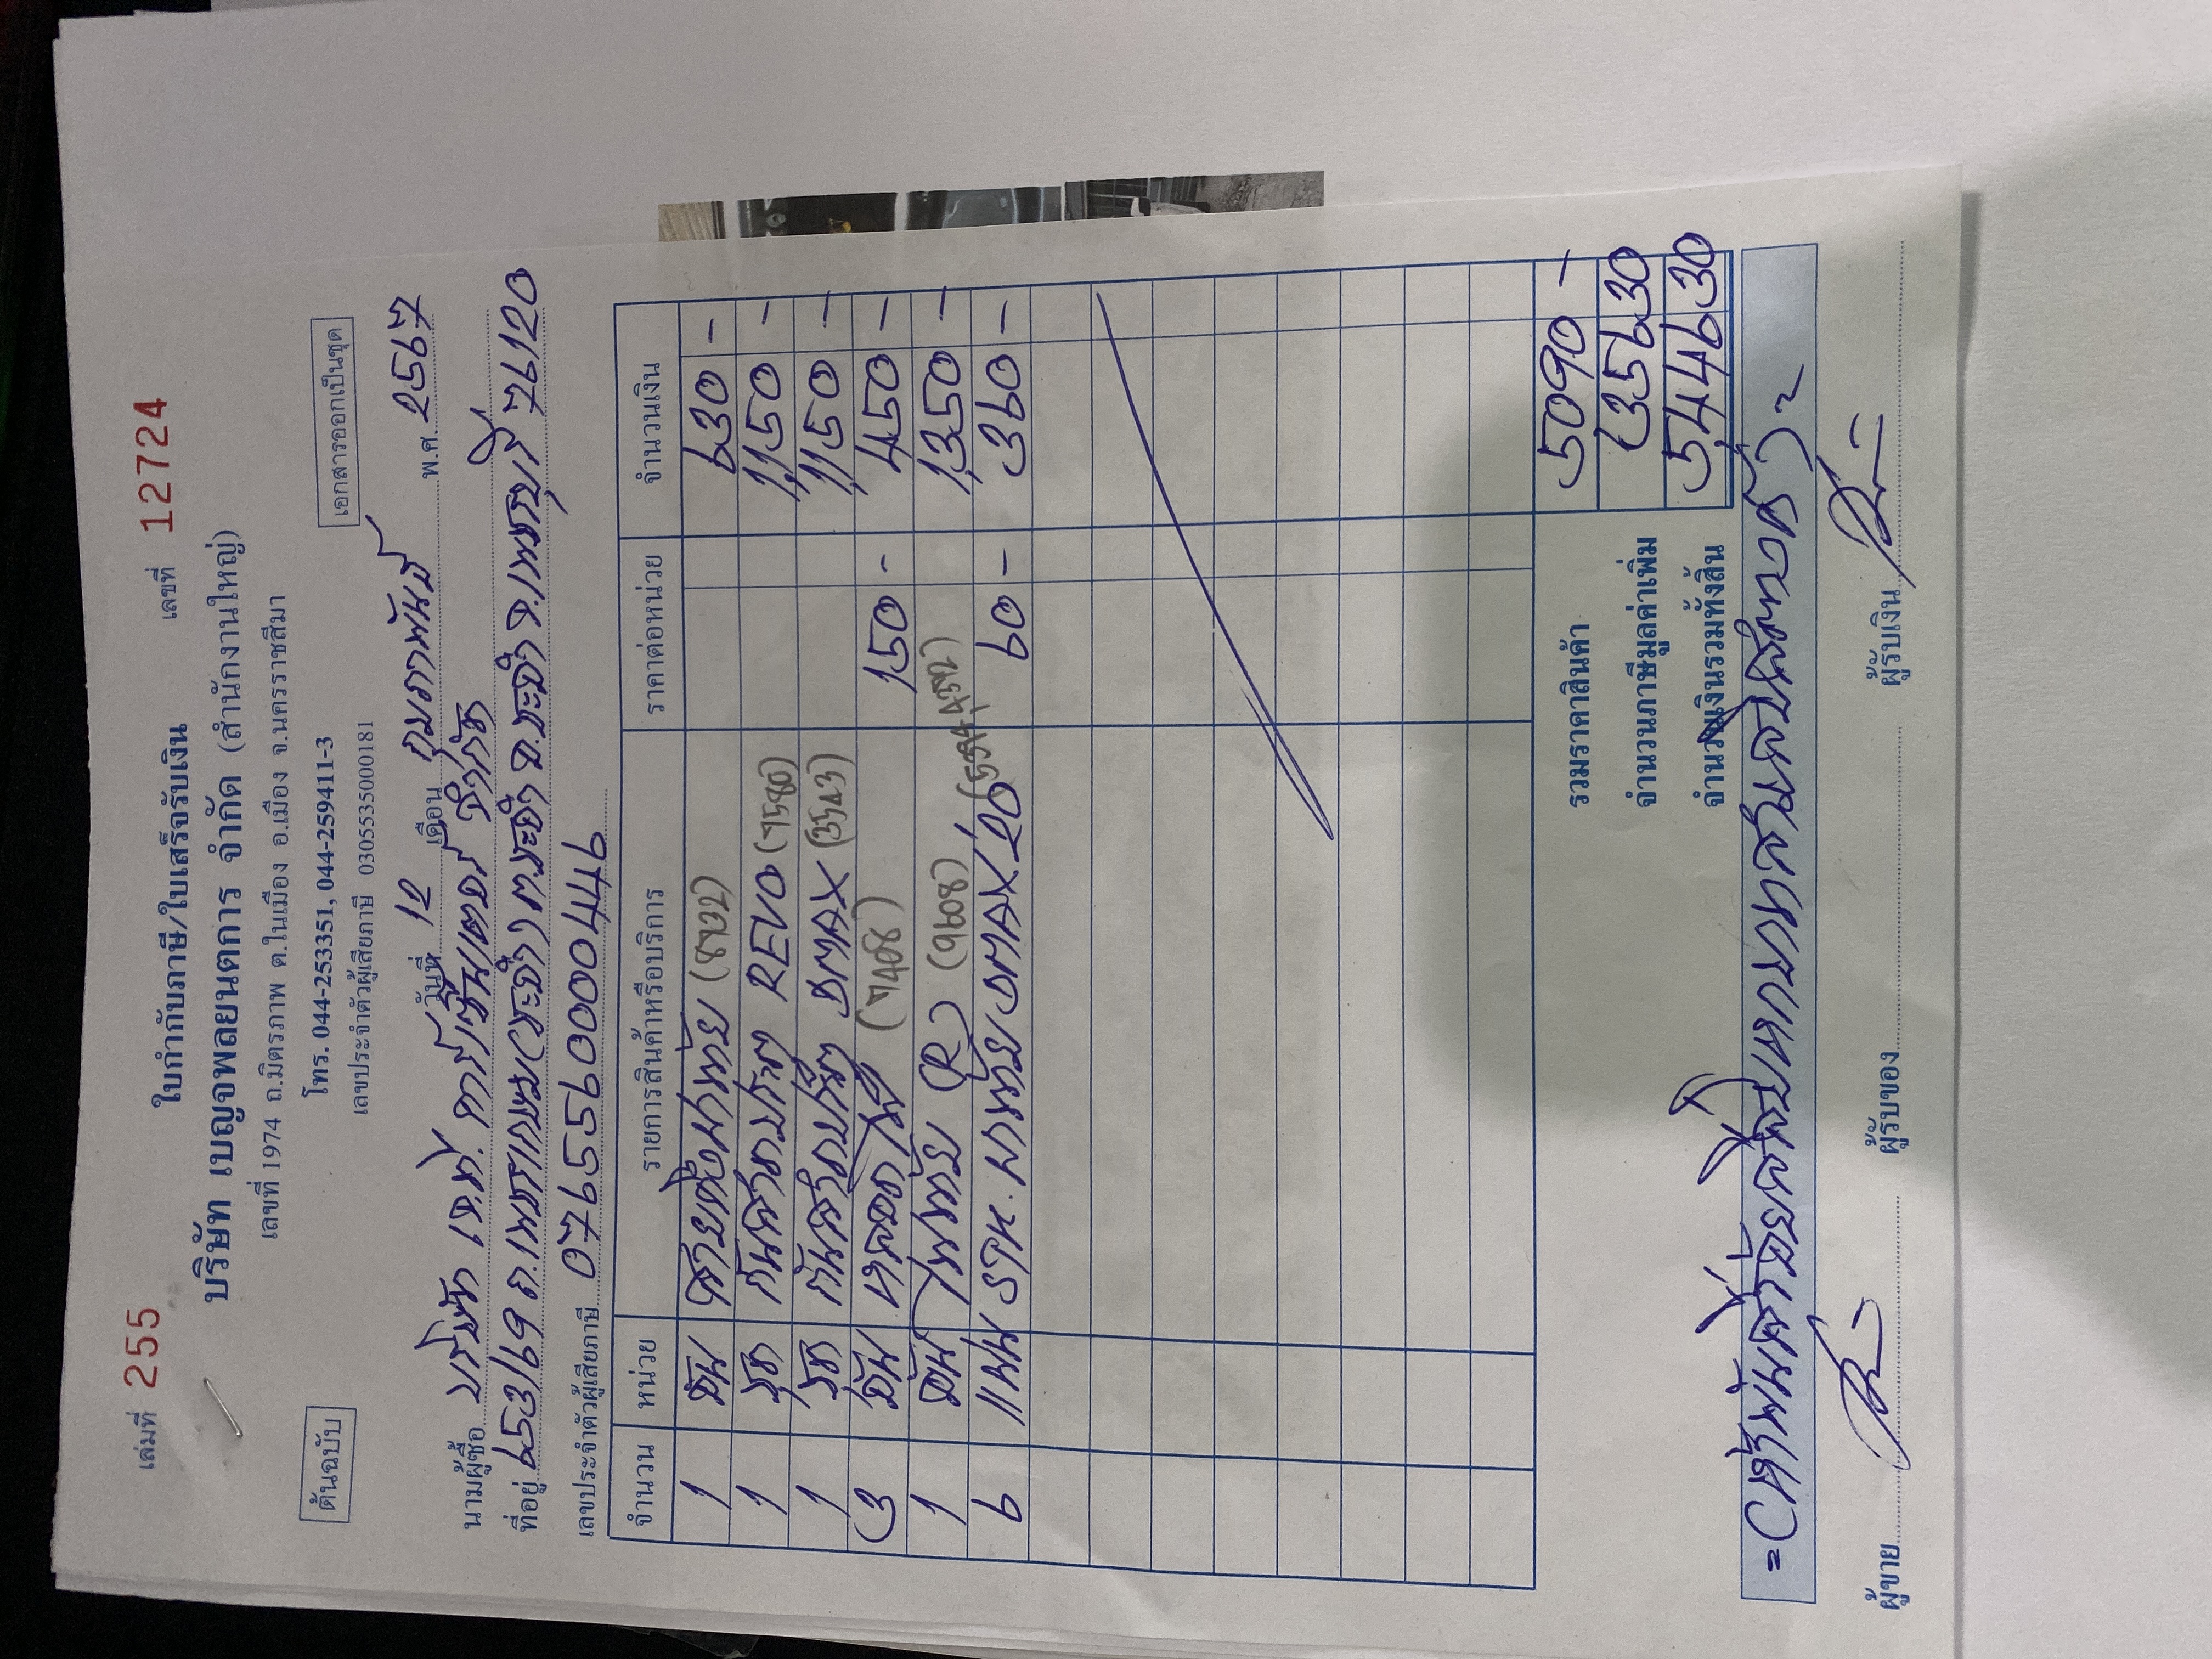 เล่มที่ 255 ใบกำกับภาษี/ใบเสร็จรับเงิน เลขที่ 12724
บริษัท เบญจพลยนตการ จำกัด (สำนักงานใหญ่)
เลขที่ 1974 ถ.มิตรภาพ ต.ในเมือง อ.เมือง จ.นครราชสีมา
ต้นฉบับ โทร. 044-253351, 044-259411-3 เอกสารออกเป็นชุด
เลขประจำตัวผู้เสียภาษี 0305535000181
วันที่ 12 เดือน กุมภาพันธ์ พ.ศ. 2567
นามผู้ซื้อ บริษัท เจ.ดับ. จำกัด
ที่อยู่ 653/69 ถ.เพชรเกษม ต.ชะอำ อ.ชะอำ จ.เพชรบุรี 76120
เลขประจำตัวผู้เสียภาษี
จำนวน หน่วย รายการสินค้าหรือบริการ ราคาต่อหน่วย จำนวนเงิน
1 อัน (8732) 630 -
1 ชุด REVO (7580) 1,150 -
1 ชุด DMAX (3543) 1,150 -
3 อัน (7408) 150 - 450 -
1 อัน ไฟท้าย (R) (9608) 1,350 -
6 แผ่น DMAX'20 60 - 360 -
รวมราคาสินค้า 5090 -
จำนวนภาษีมูลค่าเพิ่ม 356 30
จำนวนเงินรวมทั้งสิ้น 5,446 30
=(ห้าพันสี่ร้อยสี่สิบหกบาทสามสิบสตางค์)=
ผู้ขาย ผู้รับของ ผู้รับเงิน